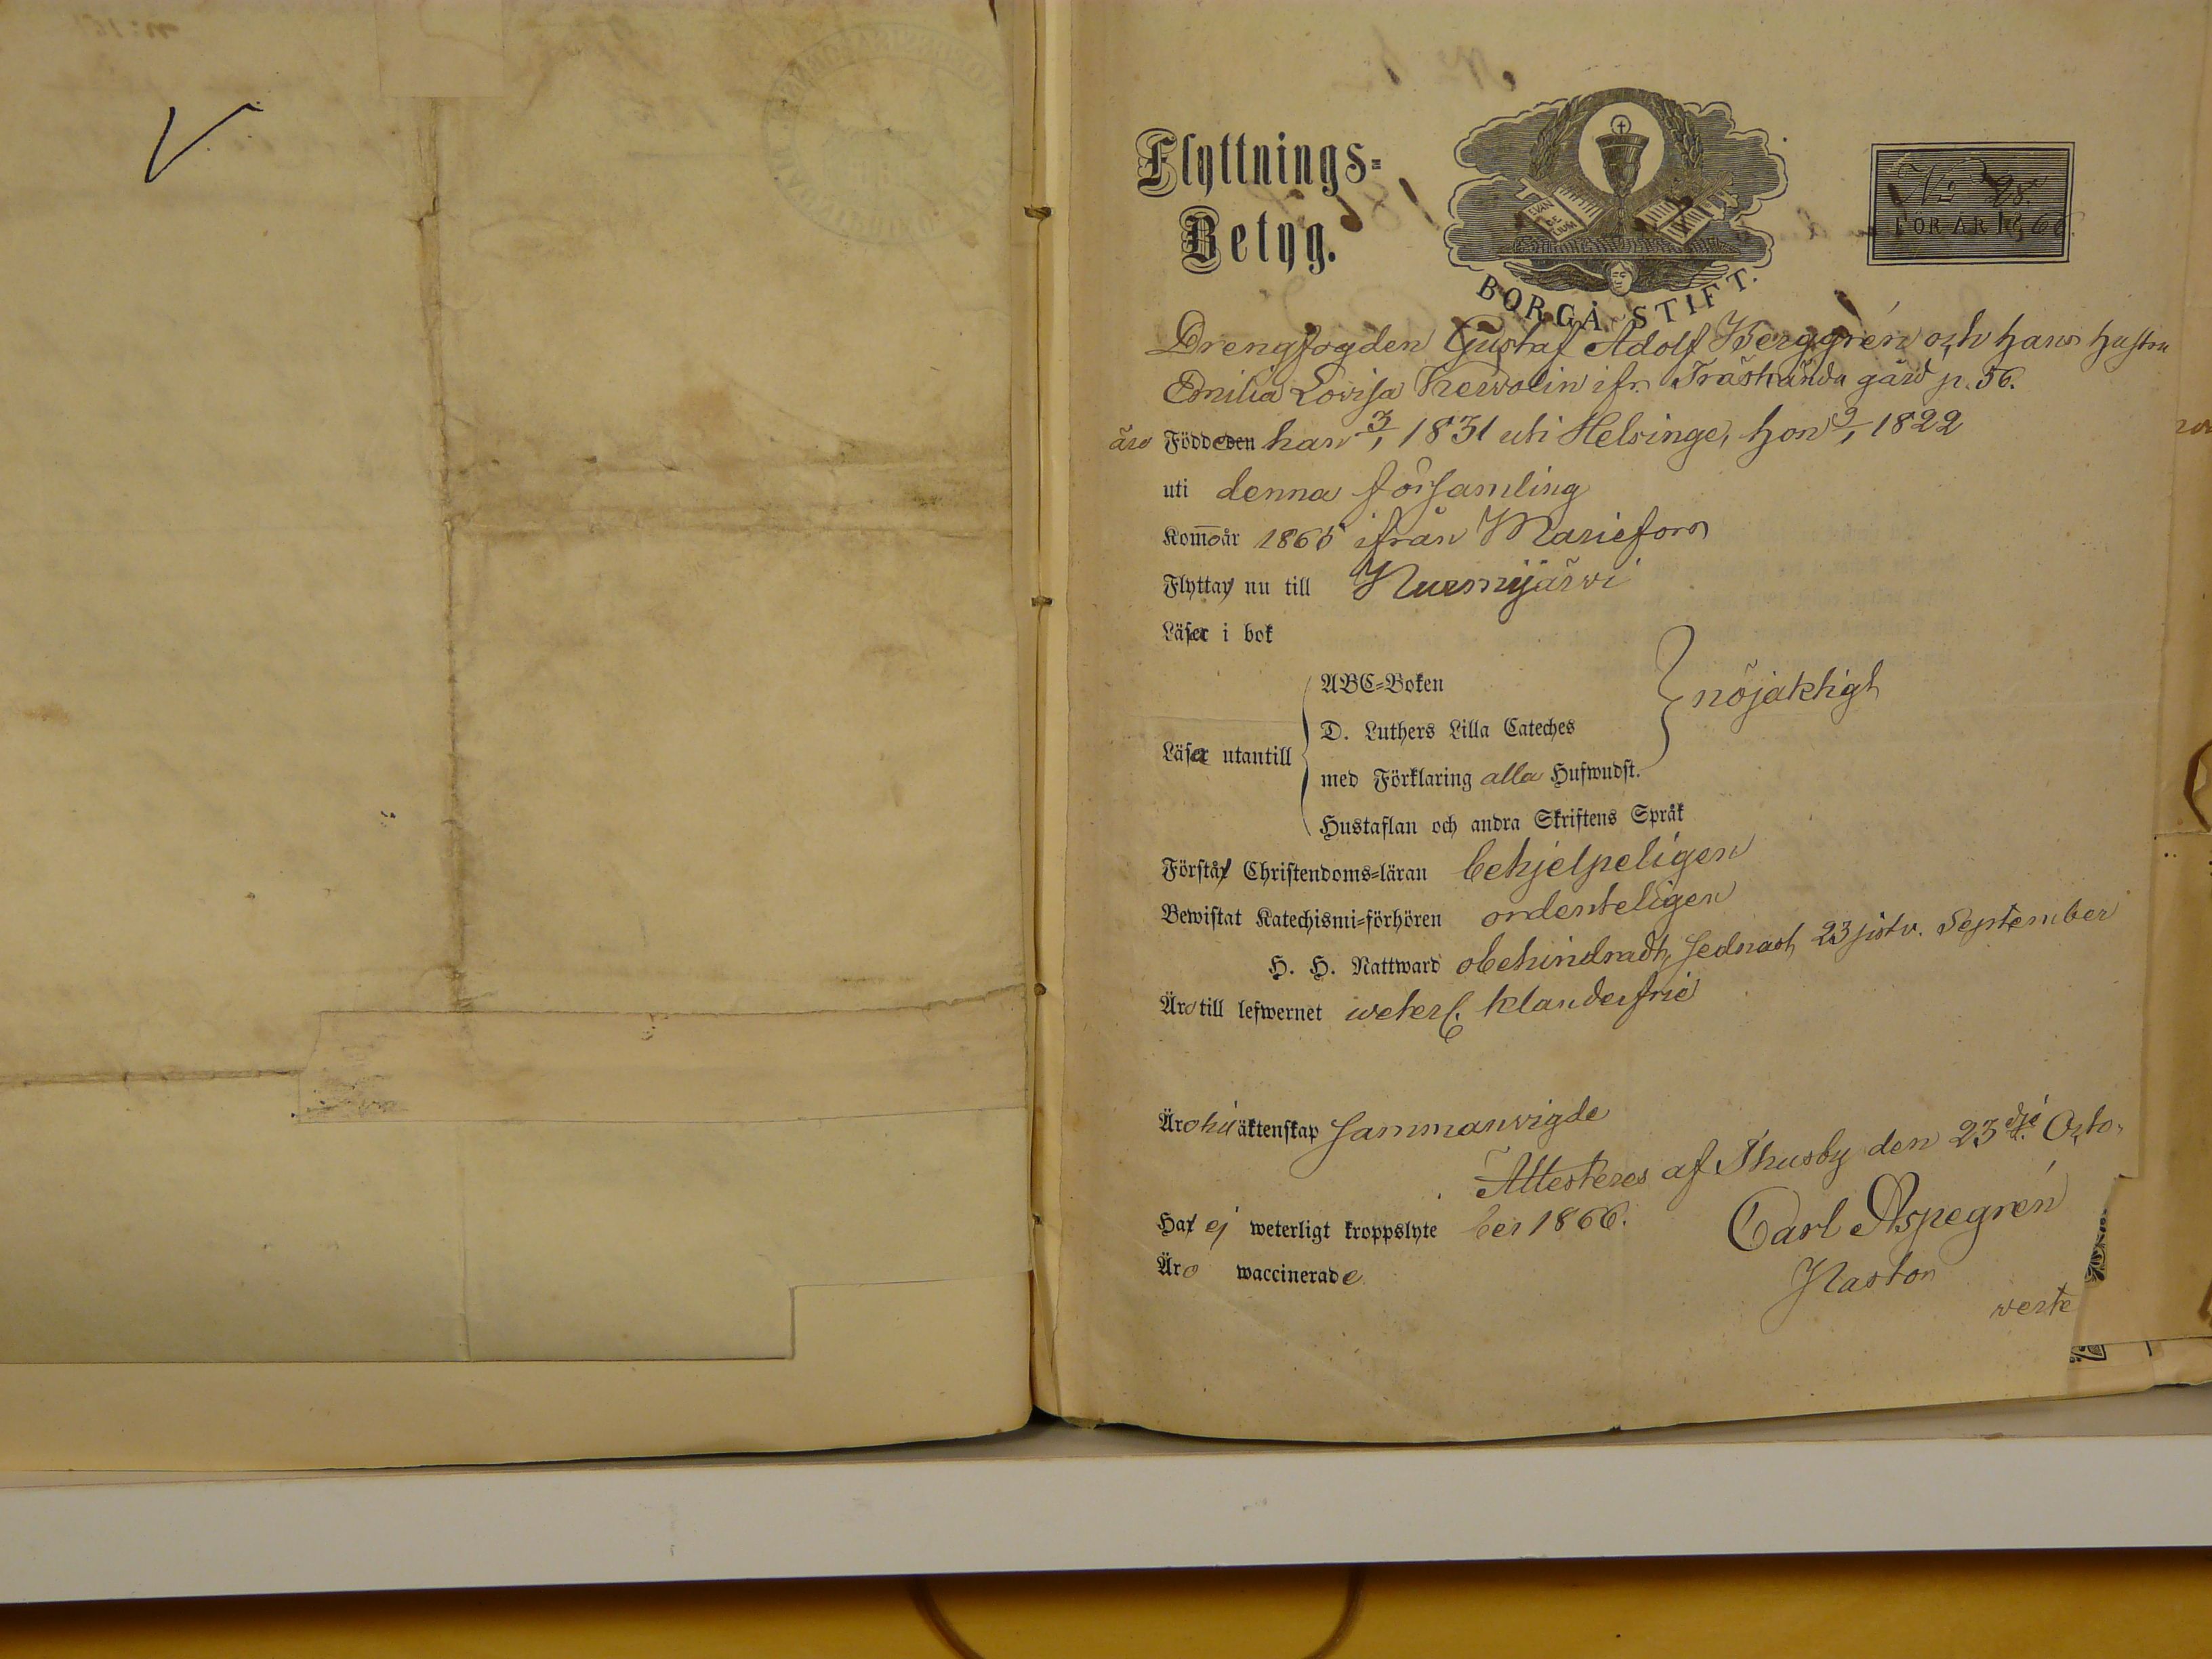 Flyttnings-
Betyg.
EVAN
GE
LIUM
BORGÅ STIFT.
No 28.
FÖR ÅR 1866.
Drengfogden Gustaf Adolf Berggrén och hans hustru
Emilia Lovisa ifr. Träskända gård p. 56.
äro Född den han 3/1 1831 uti Helsinge, hon 9/1 1822
uti denna församling
Kom̄o år 1865 ifrån Mariefors
Flytta nu till Nurmijärvi
Läsa i bok
ABC-Boken
D. Luthers Lilla Cateches
nöjaktigt
Läsa utantill
med Förklaring alla Hufwudst.
Hustaflan och andra Skriftens Språk
Förstå Christendoms-läran behjelpeligen
Bewistat Katechismi-förhören ordenteligen
H. H. Nattward obehindradt, sednast 23 sistv. September
Äro till lefwernet weterl. klanderfrie
Äro till äktenskap sammanvigde
Attesteres af Thusby den 23dje Octo-
Ha ej weterligt kroppslyte ber 1866.
Carl Aspegrén
Äro waccinerade
Pastor
verte